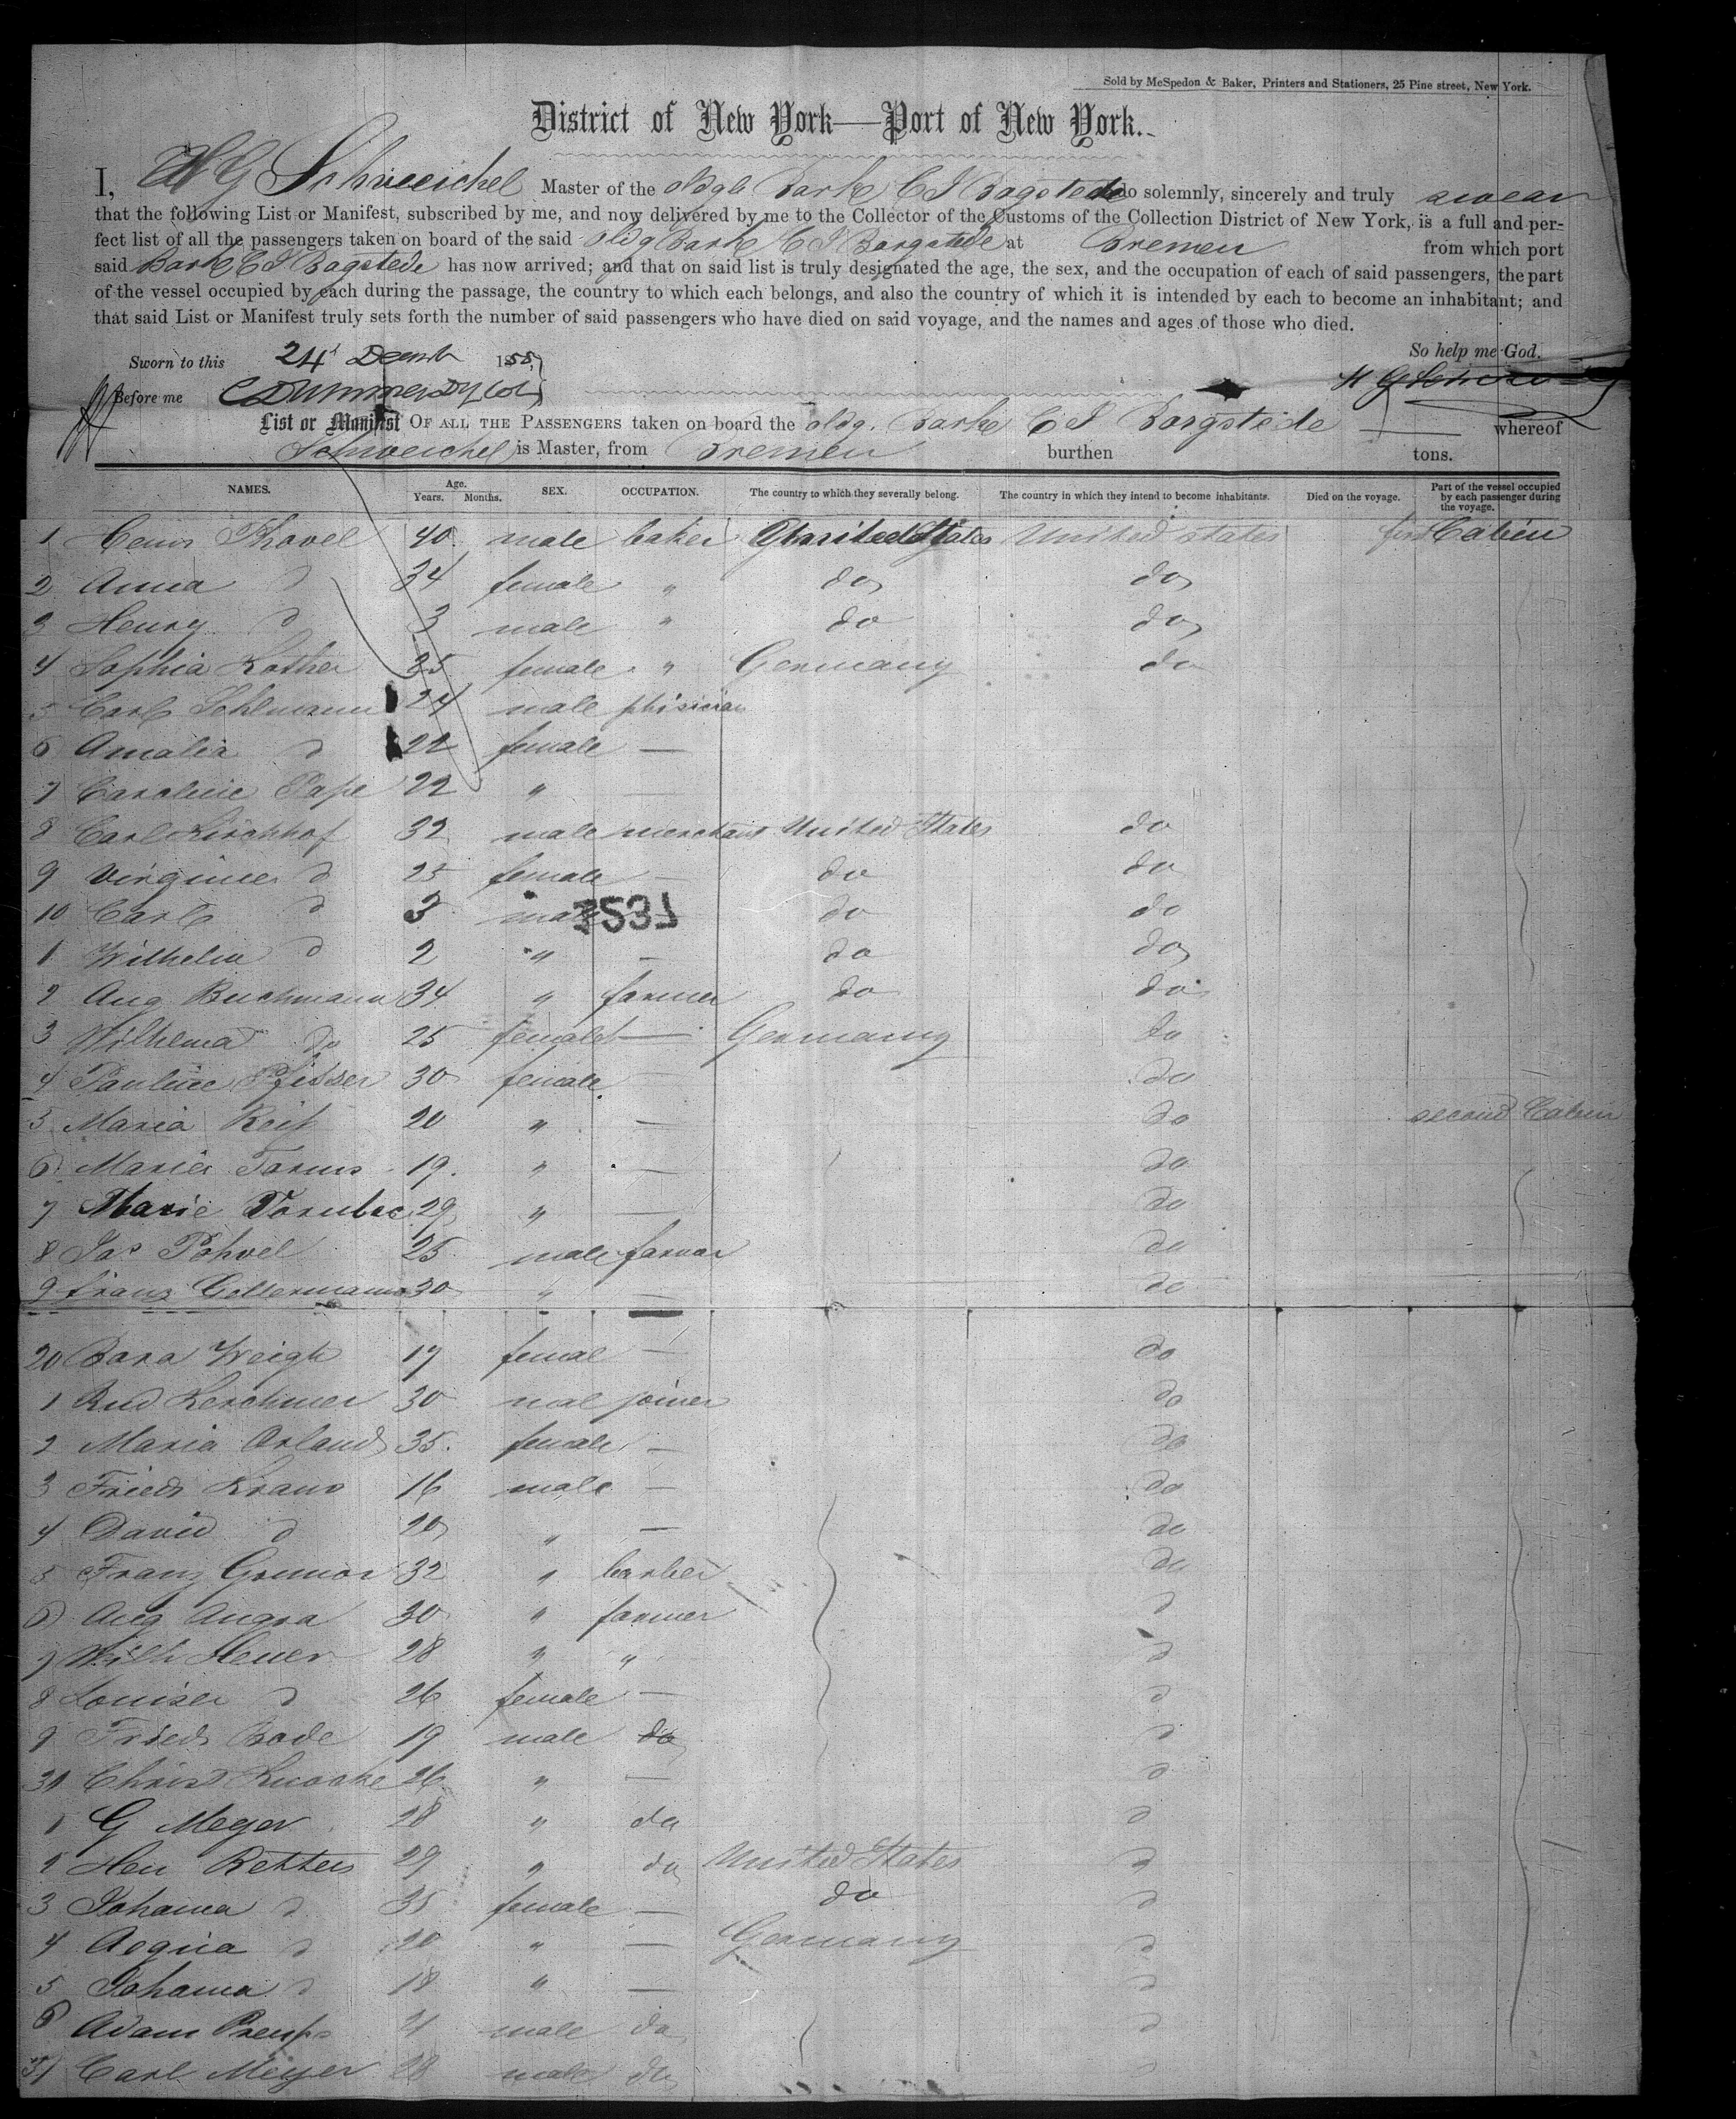 Sold by McSpedon & Baker, Printers and Stationers, 25 Pine street, New York.
District of New York—Port of New York.
I, H G Schweichel Master of the oldg Bark C J Bagstede do solemnly, sincerely and truly swear
that the following List or Manifest, subscribed by me, and now delivered by me to the Collector of the Customs of the Collection District of New York, is a full and per-
fect list of all the passengers taken on board of the said oldg Bark C J Borgstede at Bremen from which port
said Bark C J Bagstede has now arrived; and that on said list is truly designated the age, the sex, and the occupation of each of said passengers, the part
of the vessel occupied by each during the passage, the country to which each belongs, and also the country of which it is intended by each to become an inhabitant; and
that said List or Manifest truly sets forth the number of said passengers who have died on said voyage, and the names and ages of those who died.
Sworn to this 24 1855 So help me God.
Before me
List or Manifest OF ALL THE PASSENGERS taken on board the oldg. Barke C J Borgstede whereof
Schweichel is Master, from Bremen burthen tons.
NAMES. Age. Years. Months. SEX. OCCUPATION. The country to which they severally belong. The country in which they intend to become inhabitants. Died on the voyage. Part of the vessel occupied by each passenger during the voyage.
1 40 male baker United States United states first Cabin
2 Anna d 34 female " do do
3 Henry d 3 male " do do
4 Sophia Kother 35 female " Germany do
5 Carl Sohlmann 24 male phisician
6 Amalia d 22 female —
7 Caroline Pape 22 " —
8 Carl Kirchhof 32 male merchant United States do
9 Virginie d 25 female — do do
10 Carl d 3 male do do
1 Wilhelm d 2 " — do do
2 Aug Buchmann 34 " farmer do do
3 Wilhelma do 25 female — Germany do
4 Pauline Pfisser 30 female — do
5 Maria Reif 20 " — do second Cabin
6 Maria 19 " — do
7 Marie 29 " — do
8 Jas Pohvel 25 male farmar do
9 Franz Gellermann 30 " — do
20 Bara Weigh 17 femal — do
1 Rud Kerchmer 30 mal joiner do
2 Maria Orland 35 female — do
3 Friedr Kraus 16 male — do
4 David d 20 " — do
5 Franz 32 " barbier do
6 Aug Angra 30 " farmer d
7 Wilh Heuer 28 " " d
8 Louisa d 26 female — d
9 Friedr Bode 19 male do d
30 Christ Knocke 26 " — d
1 G Meyer 28 " do d
2 Hen Retters 29 " do United States d
3 Johanna d 35 female — do d
4 d 20 " — Germany d
5 Johanna d 18 " — d
6 Adam 21 male do d
37 Carl Meyer 28 male do d